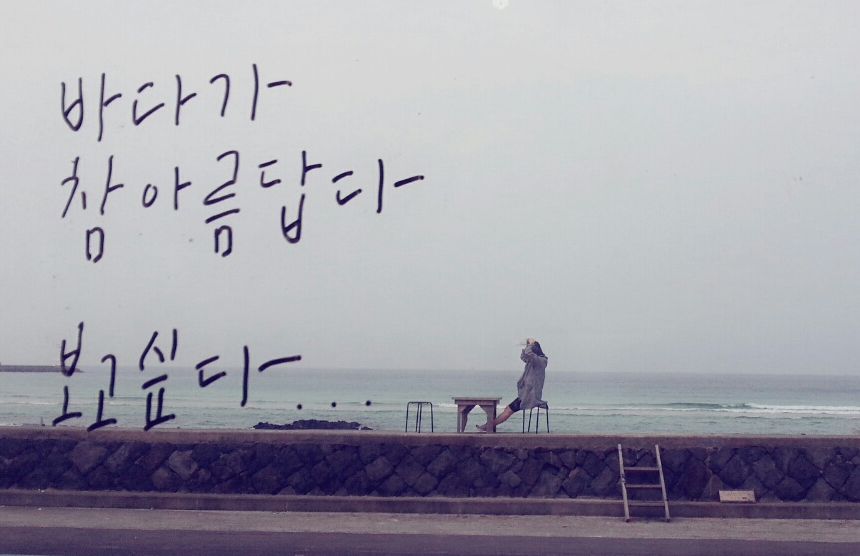 바다가
참 아름답다
보고싶다...